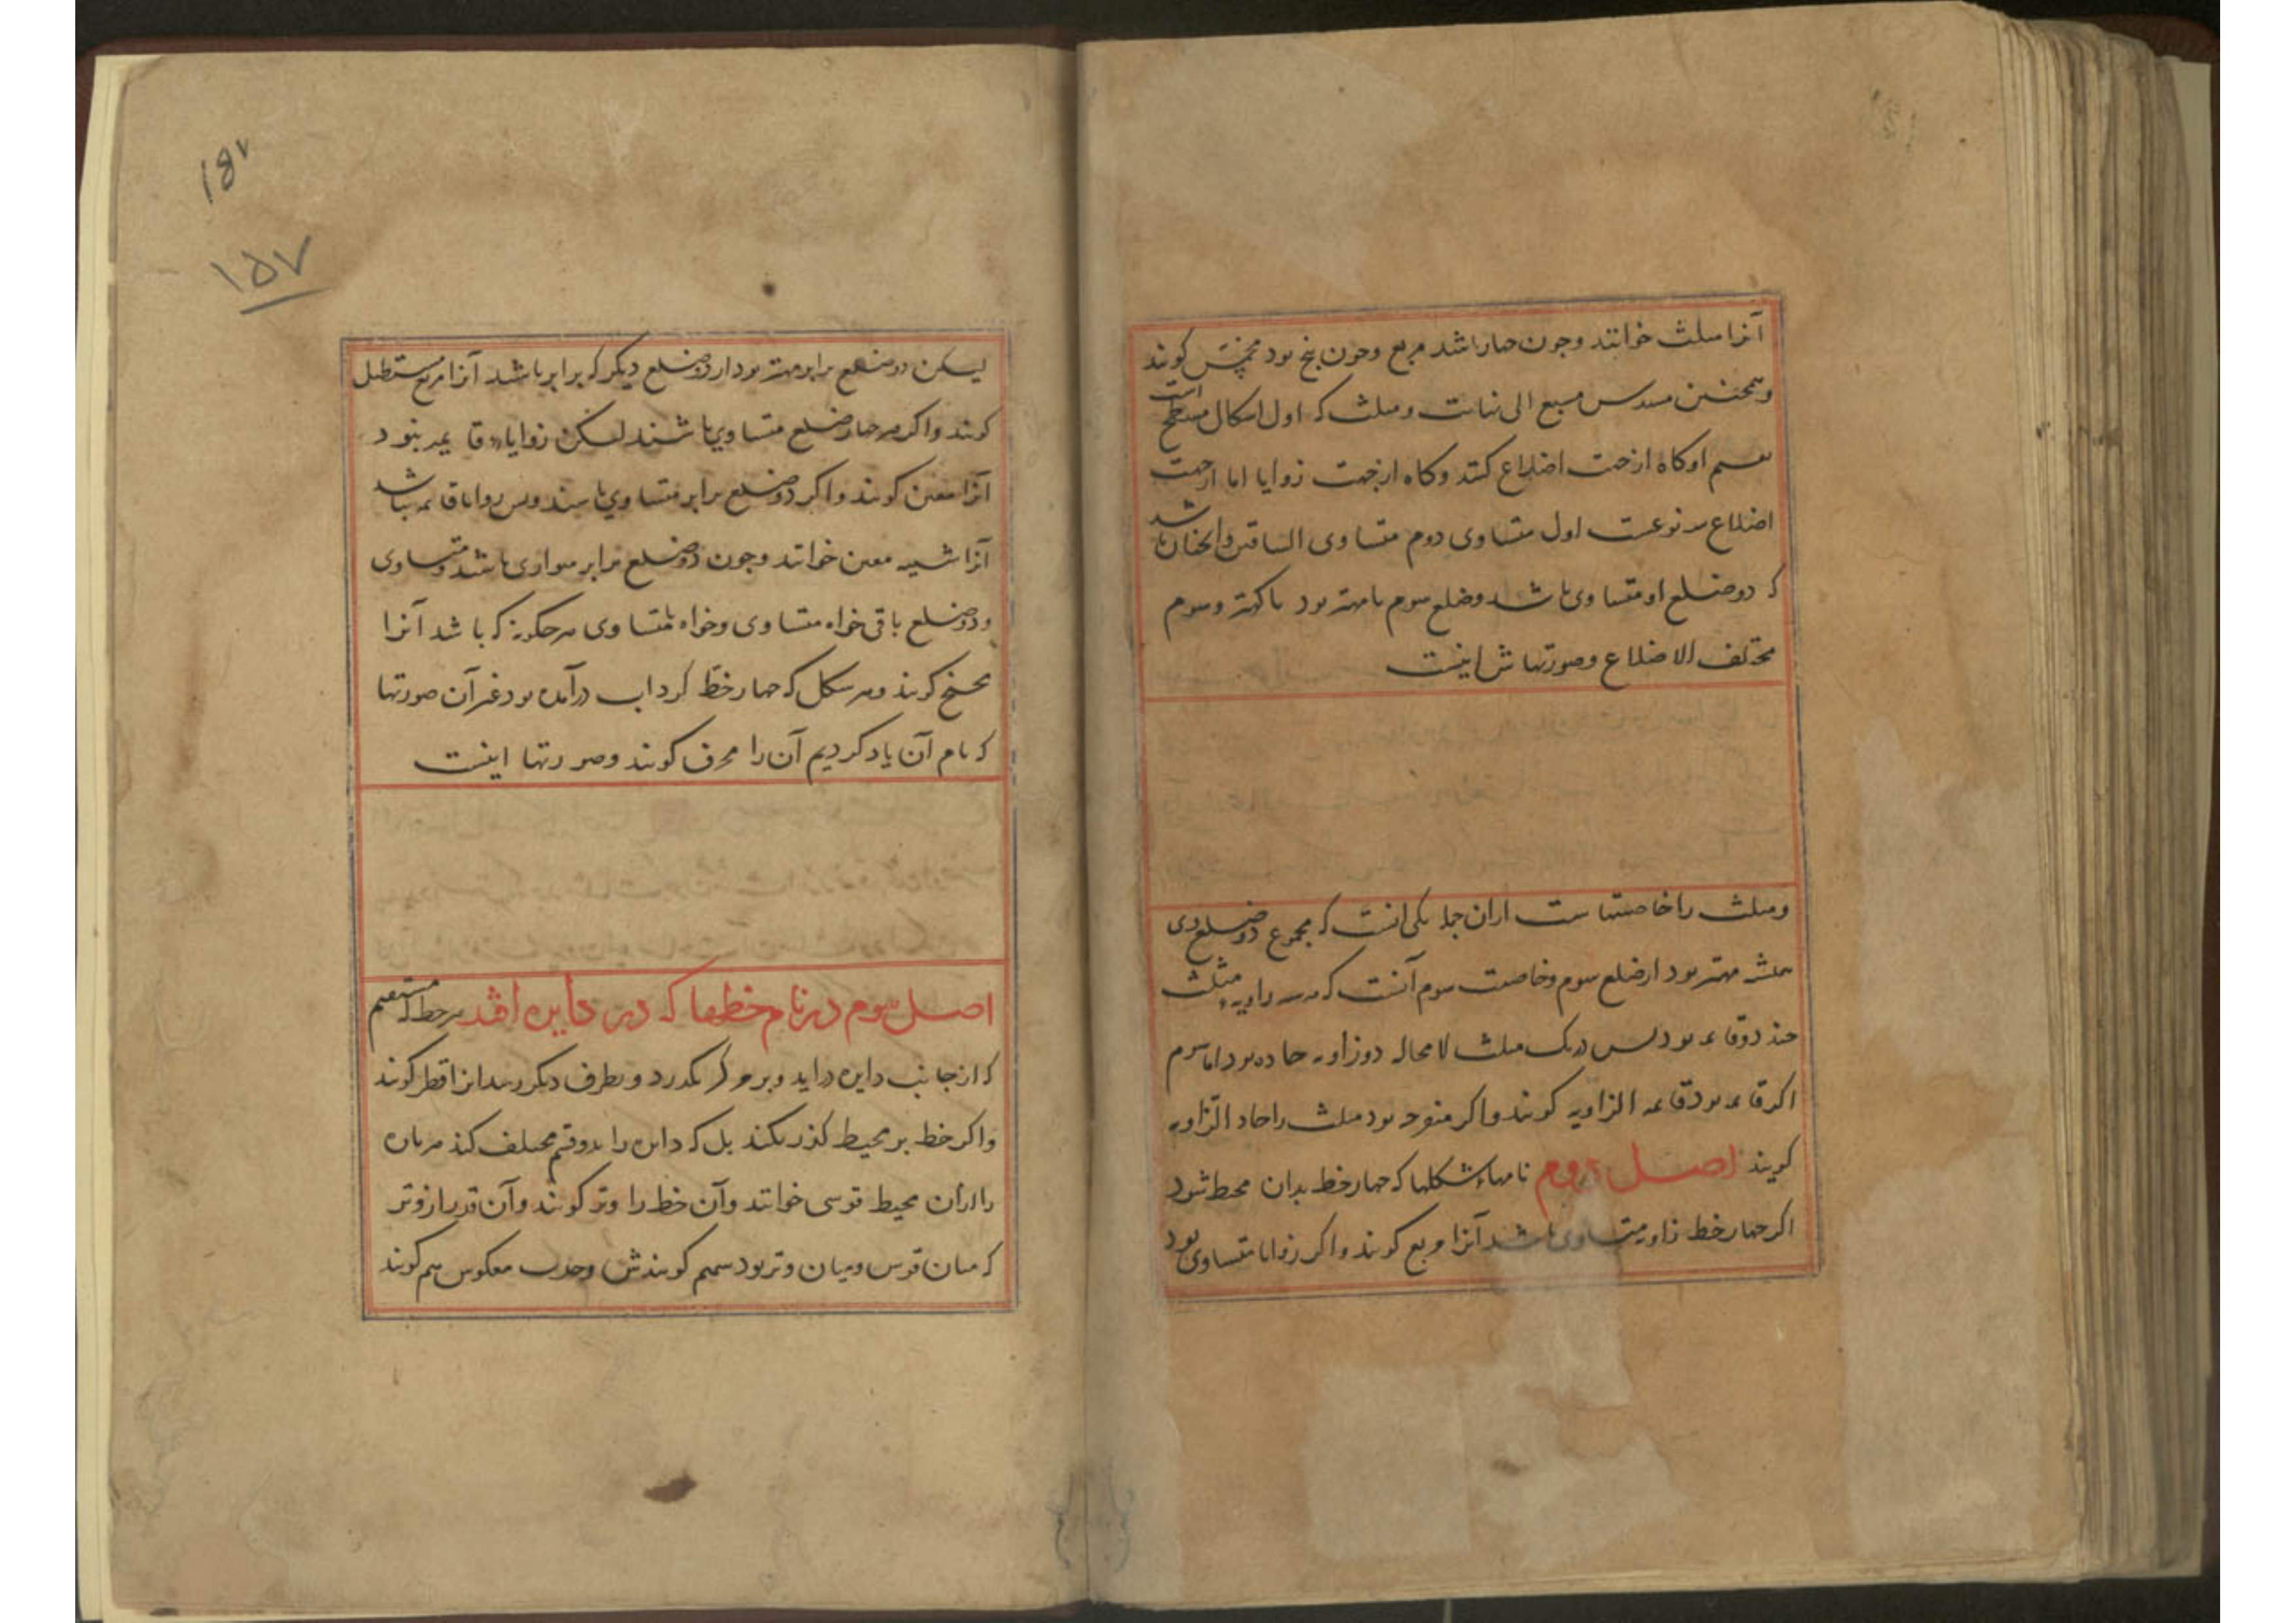 آنرا مثلث خوانند وچون چهار باشد مربع وچون پنج بود مخمّس کویند
وهمچنین مسدس مسبع الی نهایت ومثلث که اول اشکال مسطح است
تقسیم او کاه از جهت اضلاع کنند وکاه از جهت زوایا اما از جهت
اضلاع سه نوعست اول متساوی دوم متساوی الساقین وانچنان باشد
که دو ضلع او متساوی باشد وضلع سوم یا مهتر بود یا کهتر وسوم
مختلف الاضلاع وصورتهاش اینست
ومثلث را خاصیتهاست ازان جمله یکی انست که مجموع دو ضلع وی
همیشه مهتر بود از ضلع سوم وخاصیت سوم آنست که هر سه زاویهٔ مثلث
چند دو قائمه بود پس در یک مثلث لا محاله دو زاویه حاده بود اما سوم
اکر قائمه بود قائمه الزاویه کویند واکر منفرجه بود مثلث را حاد الزّاویه
کویند اصل دوم نامهاء شکلها که چهار خط بدان محیط شود
اکر چهار خط زاویه متساوی باشد آنرا مربع کویند واکر زوایا متساوی بود
۱۵۷
۱۵۷
لیکن دو ضلع برابر مهتر بود از دو ضلع دیکر که برابر باشد آنرا مربع مستطیل
کویند واکر هر چهار ضلع متساوی باشند لیکن زوایاء قایمه نبود
آنرا معین کویند واکر دو ضلع برابر متساوی باشند وپس زوایا قائمه نباشد
آنرا شبیه معین خوانند وچون دو ضلع برابر موازی باشد ومتساوی
ودو ضلع باقی خواه متساوی وخواه نامتساوی هر چکونه که باشد آنرا
کویند وهر شکل که چهار خط کرد اب درآمده بود غیر آن صورتها
که نام آن یاد کردیم آن را محرف کویند وصورتها اینست
اصل سوم در نام خطها که در دایره افتد هر خط که مستقیم
که از جانب دایره دراید وبر مرکز بگذرد وبطرف دیکر رسد انرا قطر کویند
واکر خط بر محیط کذر نکند بل که دایره را بدو قسم مختلف کند هر پاره
را ازان محیط قوسی خوانند وآن خط را وتر کویند وآن قدر از وتر
که میان قوس ومیان وتر بود سهم کویندش وجیب معکوس هم کویند